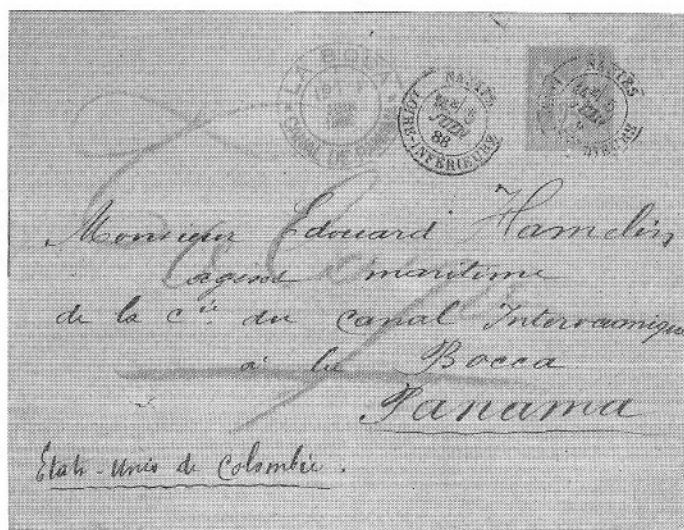 LA BOCA
CANAL DE PANAMA
NANTES
JUIN
88
LOIRE-INFERIEURE
NANTES
Monsieur Edouard Hamelin
agent maritime
de la Cie du canal Interocéanique
à la Bocca
Panama
Etats-Unis de Colombie.